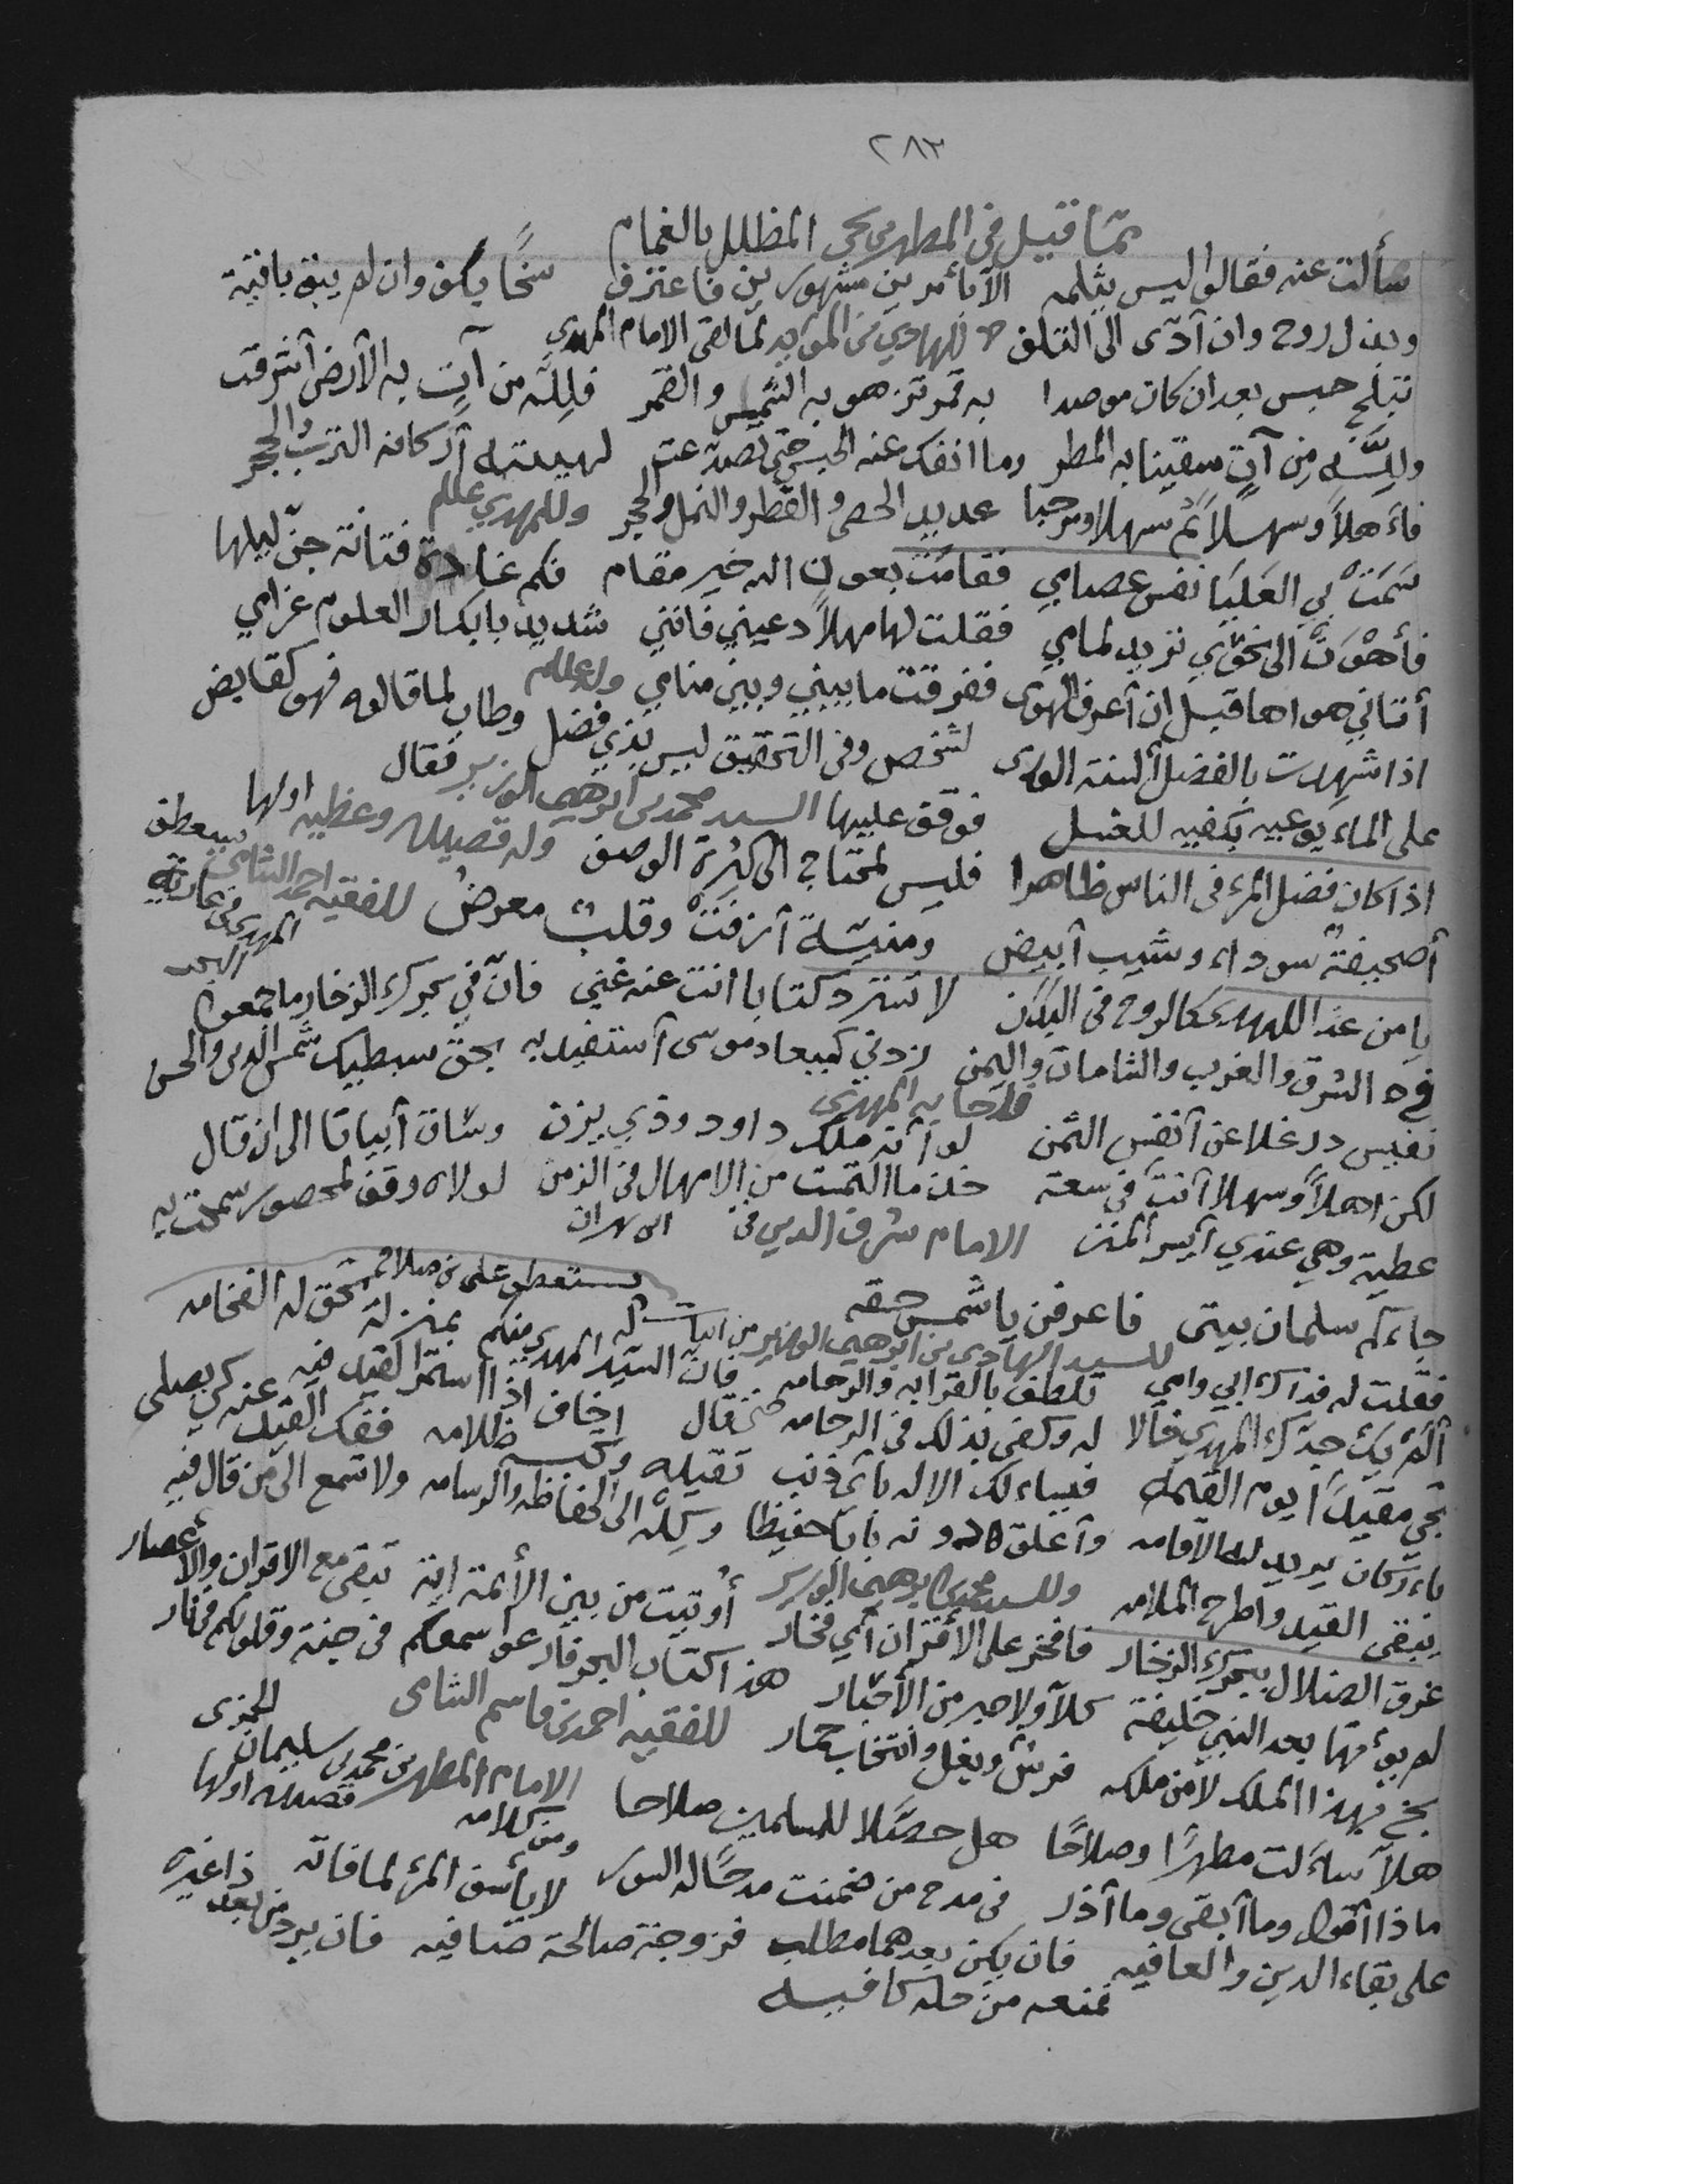 ٢٨٣
مما قيل في المطهر بن يحيى المظلل بالغمام
سألت عنه فقالوا ليس يثلمه الا بأمرين مشهورين فاعترف سخًا يكف وان لم يبق باقية
وبذل روح وان أدّى الى التلف للهادي بن المؤيد لما لقى الامام المهدي
تبلج حبس بعد ان كان موصدا به قمر تزهو به الشمس والقمر فلِلَّه من آت به الأرض أشرقت
وللَّه مِن آتٍ سقينا به المطر وما انفك عنه الحبس حتى تصدعت لهيبته أركانه الترب والحجر
فأهلاً وسهلاً ثم سهلا ومرحبا عديد الحصى والقطر والنمل والحجر وللمهدي عللم
سَمَتْ بي العَليَا نفس عصامي فقامَتْ بعون الله خير مقام فكم غادة فتانة جنّ ليلها
فأهْوَتْ الى نحوي تريد لمامي فقلت لها مهلاً دعيني فانني شديد بابكار العلوم غرامي
أتاني هواها قبل ان أعرف الهوى ففرقت ما بيني وبين منامي وله علللم
اذا شهدت بالفضل ألسنة الورى لشخص وفي التحقيق ليس بذي فضل وطاب لما قالوه فهو كقابض
على الماء يوعيه بكفيه للغسل فوقف عليها السيد محمد بن ابرهيم الوزير فقال
اذا كان فضل المرء في الناس ظاهرا فليس لمحتاج الى كثرة الوصف وله قصيدة وعظيه اولها
أصحيفةٌ سوداء وشيب أبيض ومنيّة أزفَتْ وقلبٌ معرضُ للفقيه احمد الشامي يستعطف
المهدي في عارية
البحر
يا من غدا للهدى كالروح في البَدَن لا تسترد كتابا انت عنه غني فانّ في بحرك الزخار ما جمعوا
في الشرق والغرب والشامات واليمن زدني كميعاد موسى أستفيد به بحق سبطيك شمس الدين والحسن
فاجابه المهدي
نفيس در غلا عن أنفس الثمن لو أنه ملك داود وذي يزن وساق أبياتا الى ان قال
لكن اهلاً وسهلا أنت في سعة خذ ما التمست من الامهال في الزمن لولاه وقف لمحصور سمحت به
عطية وهي عندي أيسر المنن الامام شرف الدين في
يستعطف على بن صلاح
جاءكم سلمان بيتى فاعرفن يا شمس حقه
للسيد الهادي بن ابرهيم الوزير من ابيات
فقلت له فداك ابي وامي تلطف بالقرابة والرحامه فان السيد المهدي منكم بمنزلة تحق له الفخامه
ألم يك جدك المهدي خالا له وكفى بذلك في الرحامه حتى قال اخاف اذا استمر القيد فيه
يجي مقيدًا يوم القيمه فيساءلك الاله بأي ذنب تقيده ظلامه ففك القيد عنه كي يصلى
يريد له الاقامه وأغلق دونه بابًا حفيظا وكِلْه الى الحفاظه والوسامه ولا تسمع الى من قال فيه
يبقى القيد واطرح الملامه وللسيد محمد بن ابرهيم الوزير أوتيت من بين الأئمة اية تبقى مع الاقران والأعصار
غرق الضلال ببحرك الزخار فافخر على الأقران أي فخار هذا كتاب البحر فارعوا سمعكم في جنة وقلوبكم في نار
لم يؤتها بعد النبي خليفة كلا ولا حبر من الأحبار للفقيه احمد بن قاسم الشامى
بخ فهذا الملك لا من ملكه فرس وبغل وانتخاب حمار الامام المطهر بن محمد بن سليمان الحمزي
هلاّ سألت مطهرًا وصلاحًا هل حصّلا للمسلمين صلاحا قصيدة اولها
ماذا أقول وما أبقى وما أذر في مدح من ضمنت مدحًا له السور ومن كلامه لا يأسف المرء لما فاته
على بقاء الدين والعافيه فان يكن بعدهما مطلب فزوجة صالحة صافيه فان يرد من بعد ذا غيره
نمنعه من حله كافيه